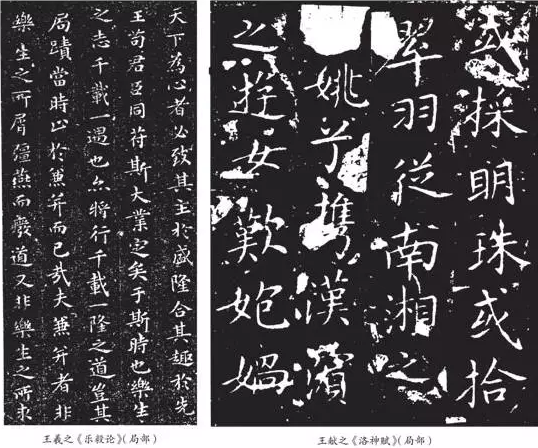 天下為心者必致其主於盛隆合其趣於先
王苟君臣同符斯大業定矣于斯時也樂生
之志千載一遇也亦將行千載一隆之道豈其
局蹟當時止於兼并而已哉夫兼并者非
樂生之所屑彊燕而廢道又非樂生之所求
王羲之《乐毅论》(局部)
或採明珠或拾
翠羽從南湘之
姚兮攜漢濱
之遊女歎㚿媧
王献之《洛神赋》(局部)